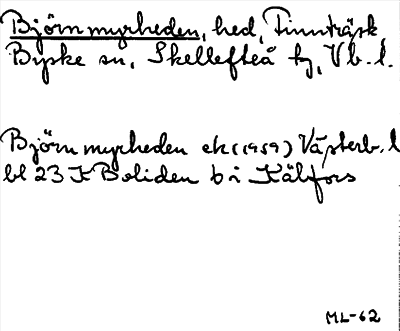 Björnmyrheden, hed, Finnträsk
Byske sn, Skellefteå tg, Vb. l.
Björnmyrheden ek (1959) Västerb. l
bl 23 K Boliden b i Kålfors
ML-62